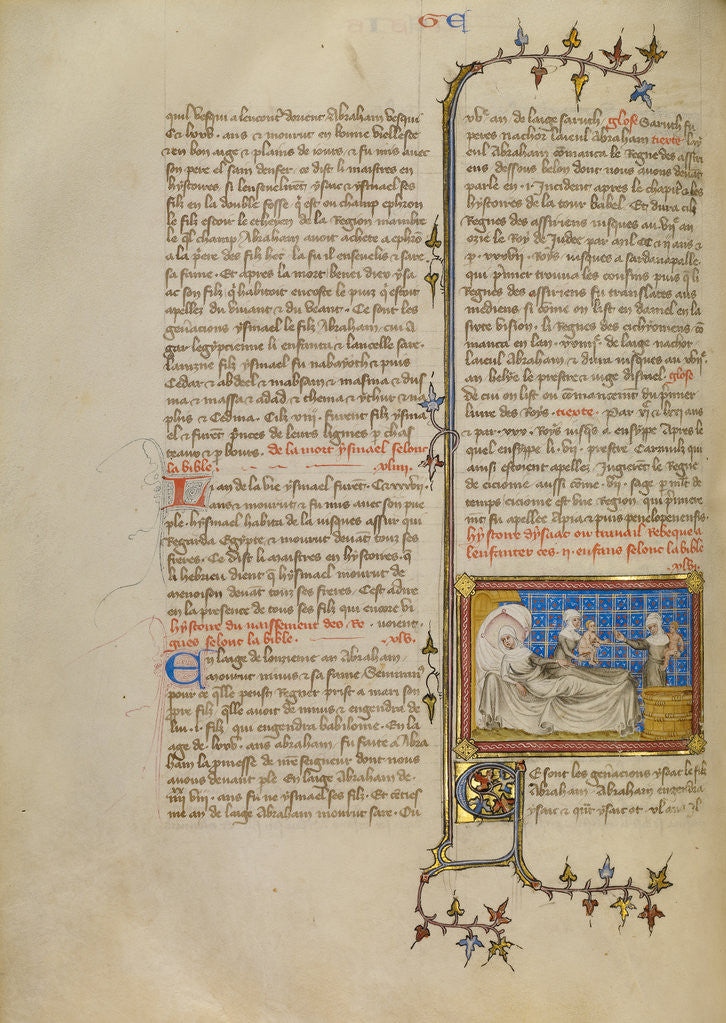 GE
qui vesqui a lencont devent Abraham vesqui
C & lxxv · ans & mourut en bonne viellesce
& en bon aige & plains de iours · & fu mis avec
son pere el sain denfer · ce dist li maistres en
hystoires · si lensevelirent ysaac & ysmael ses
filz en la double fosse q est ou champ ephron
le filz seor le etheyen de la Region mambre
le ql champ Abraham avoit achete a ephro
a la pere des filz hec la fu il ensevelis & sare
sa fame · Et apres la mort benei dieu ysa
ac son filz q habitoit encoste le puiz q estoit
apellez du vivant & du veant · Ce sont les
genacions ysmael le filz Abraham · cui A
gar legypcienne li enfanta & lancelle sare ·
Lainzne filz ysmael fu nabayoth & puis
Cedar & abdeel & mabsam & masma & du
ma & massa & adad & thema & ythur & na
phis & Cedma · Cilz xii · furent filz ysma
el & furent pnces de leurs lignies p chas
teaux & p bours · de la mort ysmael selonc
la bible · xliiii ·
Li an de la vie ysmael furet · C · xxxvii ·
ans & mourut & fu mis avec son pue
ple · hysmael habita de la iusques assur qui
Regarda Egypte & mourut devat touz ses
freres · Ce dist li maistres en hystoires · q
li hebrieu dient q hysmael mourut de
menoison devat touz ses freres · Cest adire
en la presence de tous ses filz qui encore vi
hystoire du naissement des Re · voient
gnes selonc la bible · xlv ·
En laige de lonzieme an Abraham ·
mourut ninus & sa fame Semiramis
pour ce qlle peust Regner prist a mari son
ppre filz qlle avoit de ninus & engendra de
lui · i · filz qui engendra babilone · En la
age de lxxv · ans abraham fu faite a Abra
ham la pmesse de nre seigneur dont nous
avons devant ple En laige Abraham de ·
iiii vii · ans fu ne ysmael ses filz · Et
me an de laige Abraham mourut sare · Ou
an de laige saruth · glose Saruth fu
peres nachor laieul Abraham tiexte ·
eul Abraham comanca le Regne des assiri
ens dessous belon dont nous avons devat
parle en · i · Incident apres le chapitre des
hystoires de la tour babel · Et dura cilz
Regnes des assiriens iusques au vii an
ozie le Roy de Iudee par mil CC ii ans &
p · xxxvii · Roys iusques a sardanapalle
qui pmier trouva les coussins puis q li
Regnes des assiriens fu translates aus
mediens si come on list en daniel en la
sixte vision · li Regnes des
manca en lan · xviii · de laige nachor
laieul Abraham & dura iusques au
an helye le prestre & iuge disrael · glose
De cui on list ou comancemt du premier
livre des Roys · tiexte · Par &
& par · xxx · Roys iusqs a eusyppe Apres le
quel eusyppe li · vii · prestre Carniulz qui
ainsi estoient apellez Iugierent le Regne
de cicione aussi come · vii · sage p mlt de
temps cicione est une Region qui pmiere
mt fu apellee Apia & puis penelopenensis ·
hystoire dysaac ou travail Rebeque a
lenfanter ces · ii · enfans selonc la bible
xlvi ·
Ce sont les genacions ysaac le filz
Abraham · Abraham engendra
ysaac & qnt ysaac ot · xl ans il